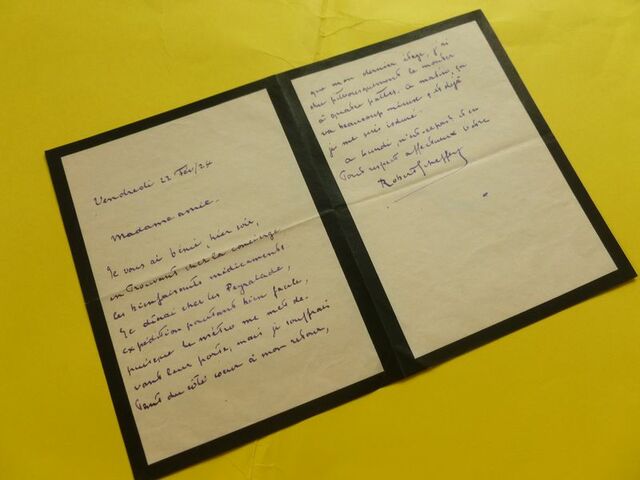 Vendredi 22 Fév/24
Madame amie.
Je vous ai béni, hier soir,
en trouvant chez la concierge
les bienfaisants médicaments
Je dînai chez les Peyralade,
expédition pourtant bien facile,
puisque le métro me met de-
vant leur porte, mais je souffrais
tant du côté cœur à mon retour,
que mon dernier étage, j'ai
dû pittoresquement le monter
à quatre pattes. Ce matin, ça
va beaucoup mieux, et déjà
je me suis
à lundi, n'est-ce pas? et en
tout respect affectueux vôtre
Robert Scheffer